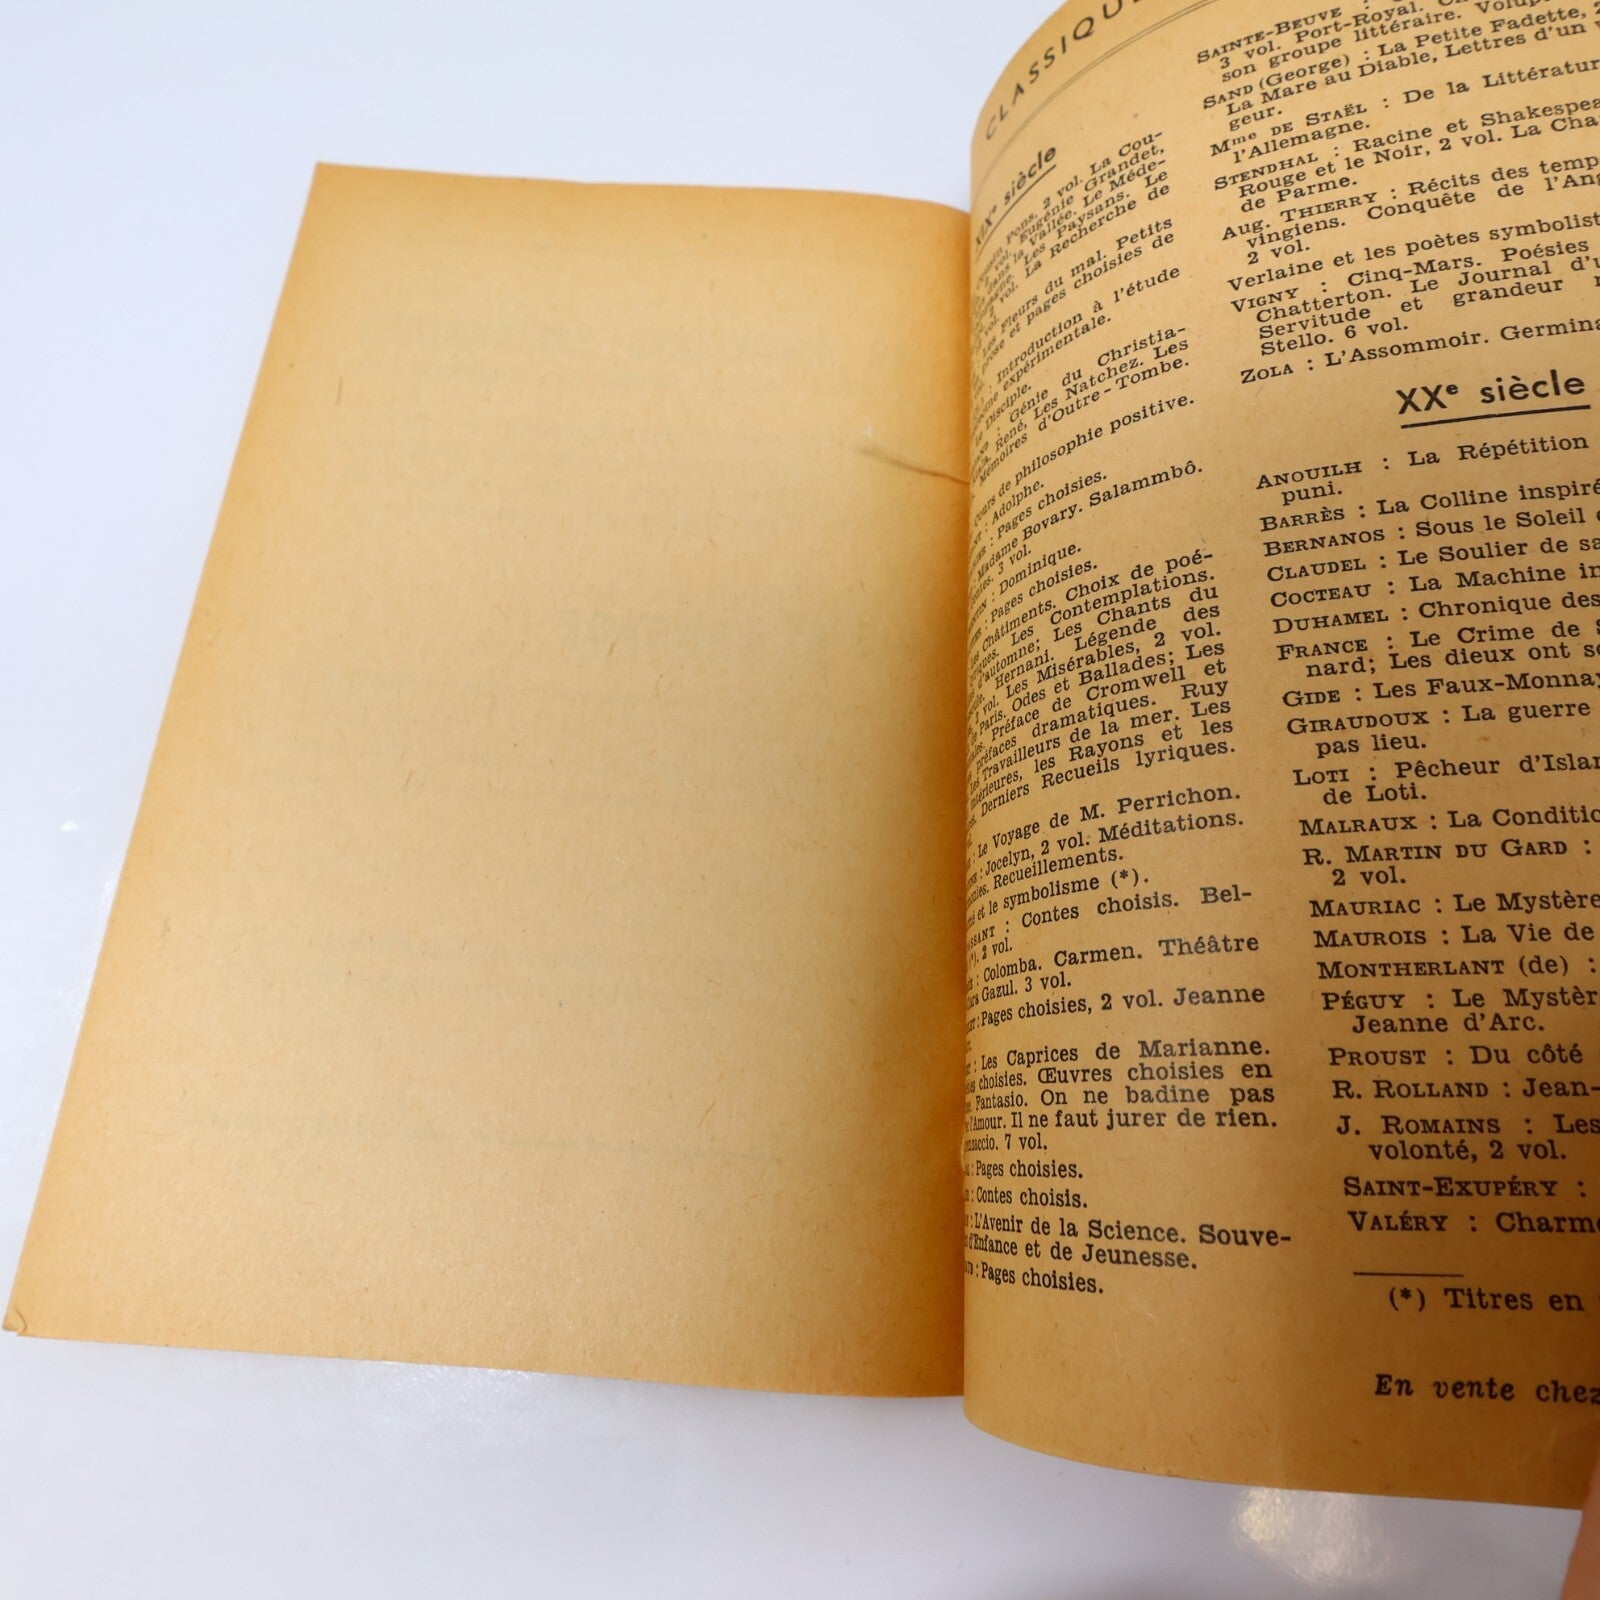 CLASSIQU
XIXe siècle
Pons, 2 vol. La Cou-
vol. Eugénie Grandet,
dans la Vallée. Le Méde-
Les Paysans. Le
vol. La Recherche de
Les Fleurs du mal. Petits
prose et pages choisies de
: Introduction à l'étude
expérimentale.
Le Disciple.
: Génie du Christia-
René, Les Natchez. Les
Mémoires d'Outre-Tombe.
Cours de philosophie positive.
: Adolphe.
: Pages choisies.
: Madame Bovary. Salammbô.
3 vol.
: Dominique.
: Pages choisies.
Les Châtiments. Choix de poé-
Les Contemplations.
d'automne; Les Chants du
Hernani. Légende des
vol. Les Misérables, 2 vol.
de Paris. Odes et Ballades; Les
Préface de Cromwell et
préfaces dramatiques. Ruy
Les Travailleurs de la mer. Les
intérieures, les Rayons et les
Derniers Recueils lyriques.
: Le Voyage de M. Perrichon.
: Jocelyn, 2 vol. Méditations.
Recueillements.
et le symbolisme (*).
: Contes choisis. Bel-
(*). 2 vol.
: Colomba. Carmen. Théâtre
Clara Gazul. 3 vol.
: Pages choisies, 2 vol. Jeanne
: Les Caprices de Marianne.
choisies. Œuvres choisies en
Fantasio. On ne badine pas
l'Amour. Il ne faut jurer de rien.
7 vol.
: Pages choisies.
: Contes choisis.
: L'Avenir de la Science. Souve-
d'Enfance et de Jeunesse.
: Pages choisies.
SAINTE-BEUVE :
3 vol. Port-Royal.
son groupe littéraire.
SAND (George) : La Petite Fadette,
La Mare au Diable, Lettres d'un
geur.
Mme DE STAËL : De la Littératur
l'Allemagne.
STENDHAL : Racine et Shakespea
Rouge et le Noir, 2 vol. La Cha
de Parme.
Aug. THIERRY : Récits des temp
vingiens. Conquête de l'Ang
2 vol.
Verlaine et les poètes symbolist
VIGNY : Cinq-Mars. Poésies
Chatterton. Le Journal d'u
Servitude et grandeur
Stello. 6 vol.
ZOLA : L'Assommoir. Germina
XXe siècle
ANOUILH : La Répétition
puni.
BARRÈS : La Colline inspiré
BERNANOS : Sous le Soleil
CLAUDEL : Le Soulier de sa
COCTEAU : La Machine in
DUHAMEL : Chronique des
FRANCE : Le Crime de S
nard; Les dieux ont so
GIDE : Les Faux-Monnay
GIRAUDOUX : La guerre
pas lieu.
LOTI : Pêcheur d'Islan
de Loti.
MALRAUX : La Conditio
R. MARTIN DU GARD :
2 vol.
MAURIAC : Le Mystère
MAUROIS : La Vie de
MONTHERLANT (de) :
PÉGUY : Le Mystèr
Jeanne d'Arc.
PROUST : Du côté
R. ROLLAND : Jean-
J. ROMAINS : Les
volonté, 2 vol.
SAINT-EXUPÉRY :
VALÉRY : Charme
(*) Titres en
En vente chez